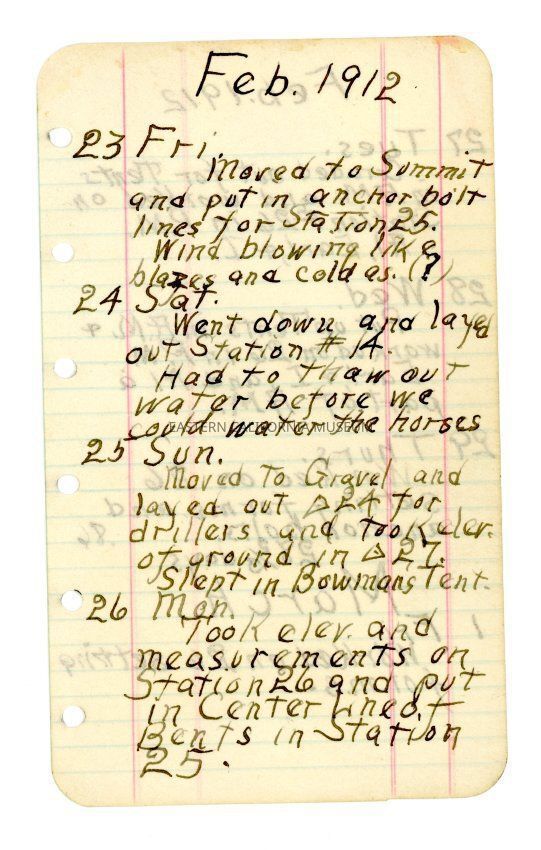 Feb. 1912
23 Fri.
Moved to Summit
and put in anchor bolt
lines for Station 25.
Wind blowing like
blazes and cold as. (?)
24 Sat.
Went down and layed
out Station # 14.
Had to thaw out
water before we
could water the horses
EASTERN CALIFORNIA MUSEUM
25 Sun.
Moved To Gravel and
layed out △24 for
drillers and took elev.
of ground in △ 27.
Slept in Bowmans Tent.
26 Mon.
Took elev. and
measurements on
Station 26 and put
in Center Line &
Bents in Station
25.